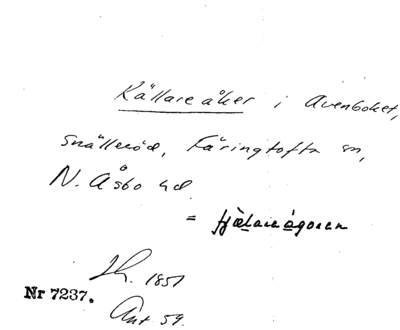 Källareåker i Avenboket,
Snälleröd, Färingtofta sn,
N. Åsbo hd
= tjælaraågoren
Sk. 1851
Nr 7237.
Ant. 59.